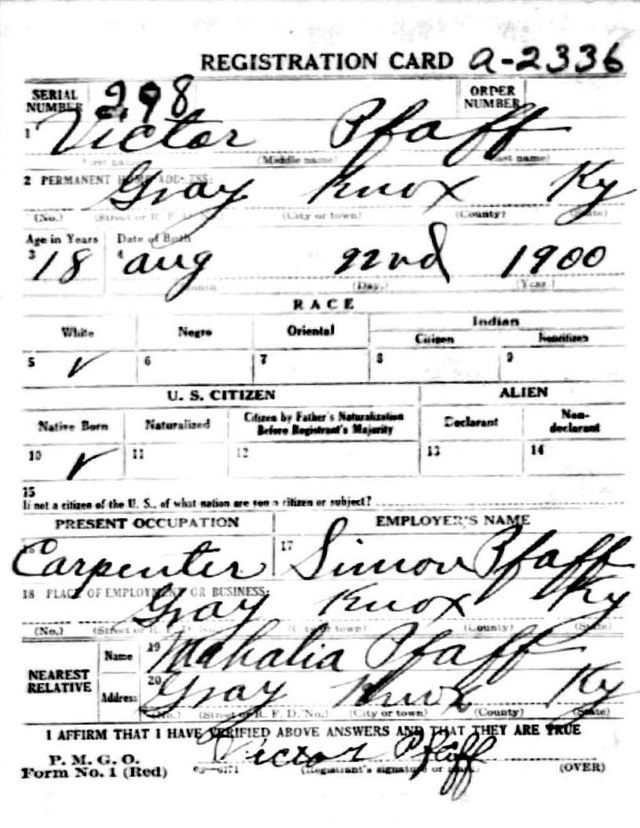 REGISTRATION CARD a-2336
SERIAL NUMBER 298 ORDER NUMBER
1 Victor Pfaff
(Middle name) (Last name)
2 PERMANENT HOME ADDRESS:
Gray Knox Ky
(No.) (Street or R. F. D. No.) (City or town) (County) (State)
Age in Years Date of Birth
3 18 4 Aug 22nd 1900
(Month) (Day.) (Year.)
RACE
White Negro Oriental Indian
Citizen Noncitizen
5 ✓ 6 7 8 9
U. S. CITIZEN ALIEN
Native Born Naturalized Citizen by Father's Naturalization Before Registrant's Majority Declarant Non-declarant
10 ✓ 11 12 13 14
15
If not a citizen of the U. S., of what nation are you a citizen or subject?
PRESENT OCCUPATION EMPLOYER'S NAME
16 Carpenter 17 Simon Pfaff
18 PLACE OF EMPLOYMENT OR BUSINESS:
Gray Knox Ky
(No.) (Street or R. F. D. No.) (City or town) (County) (State)
NEAREST RELATIVE Name 19 Mahalia Pfaff
Address 20 Gray Knox Ky
(No.) (Street or R. F. D. No.) (City or town) (County) (State)
I AFFIRM THAT I HAVE VERIFIED ABOVE ANSWERS AND THAT THEY ARE TRUE
P. M. G. O.
Form No. 1 (Red) Victor Pfaff
(Registrant's signature or mark) (OVER)